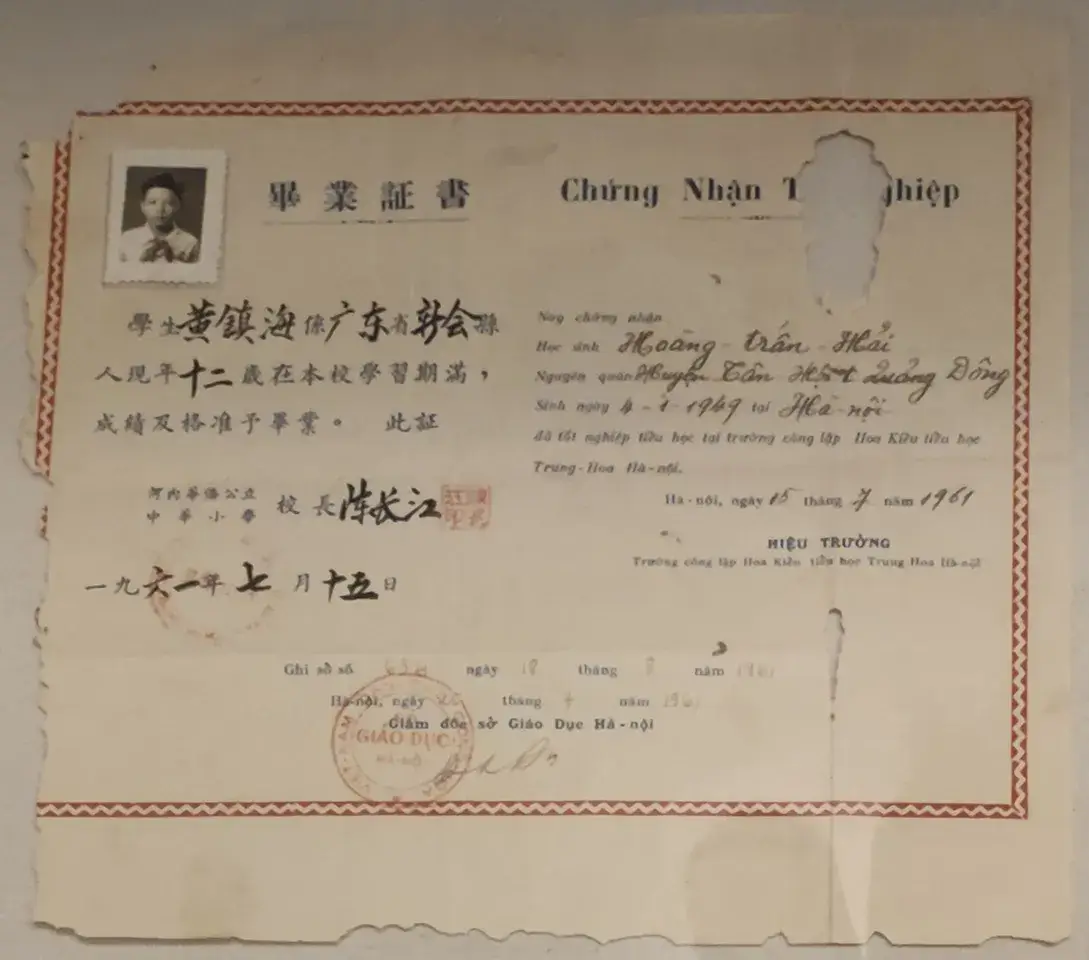 畢業証書
學生黄鎮海係广东省新会縣
人現年十二歲在本校學習期滿，
成績及格准予畢業。 此証
河內華僑公立
中華小學
校長陈长江
一九六一年七月十五日
Chứng Nhận T ghiệp
Nay chứng nhận
Học sinh Hoàng - trấn - Hải
Nguyên quán Huyện Tân Hội t Quảng Đông
Sinh ngày 4-1-1949 tại Hà-nội
đã tốt nghiệp tiểu học tại trường công lập Hoa Kiều tiểu học
Trung-Hoa Hà-nội.
Hà-nội, ngày 15 tháng 7 năm 1961
HIỆU TRƯỞNG
Trường công lập Hoa Kiều tiểu học Trung Hoa Hà-nội
Ghi sổ số ngày 18 tháng 8 năm 1961
Hà-nội, ngày tháng năm 1961
Giám đốc sở Giáo Dục Hà-nội
GIÁO DỤC
HÀ-NỘI